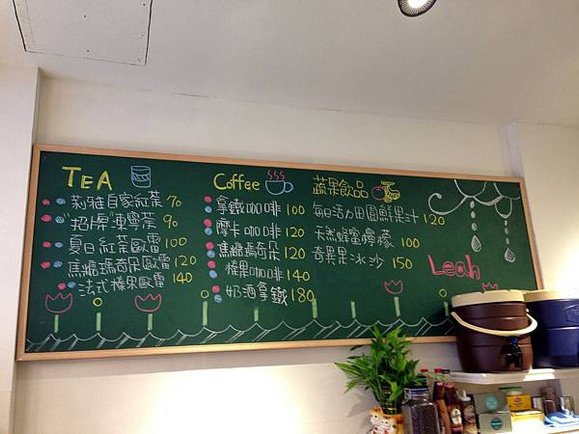 TEA
莉雅自家紅茶 70
"招牌"凍檸茶 90
夏日紅茶歐蕾 100
焦糖瑪奇朵歐蕾 120
法式榛果歐蕾 140
Coffee
拿鐵咖啡 100
摩卡咖啡 120
焦糖瑪奇朵 120
榛果咖啡 140
奶酒拿鐵 180
蔬果飲品
每日活力田園鮮果汁 120
天然蜂蜜檸檬 100
奇異果冰沙 150
Leah